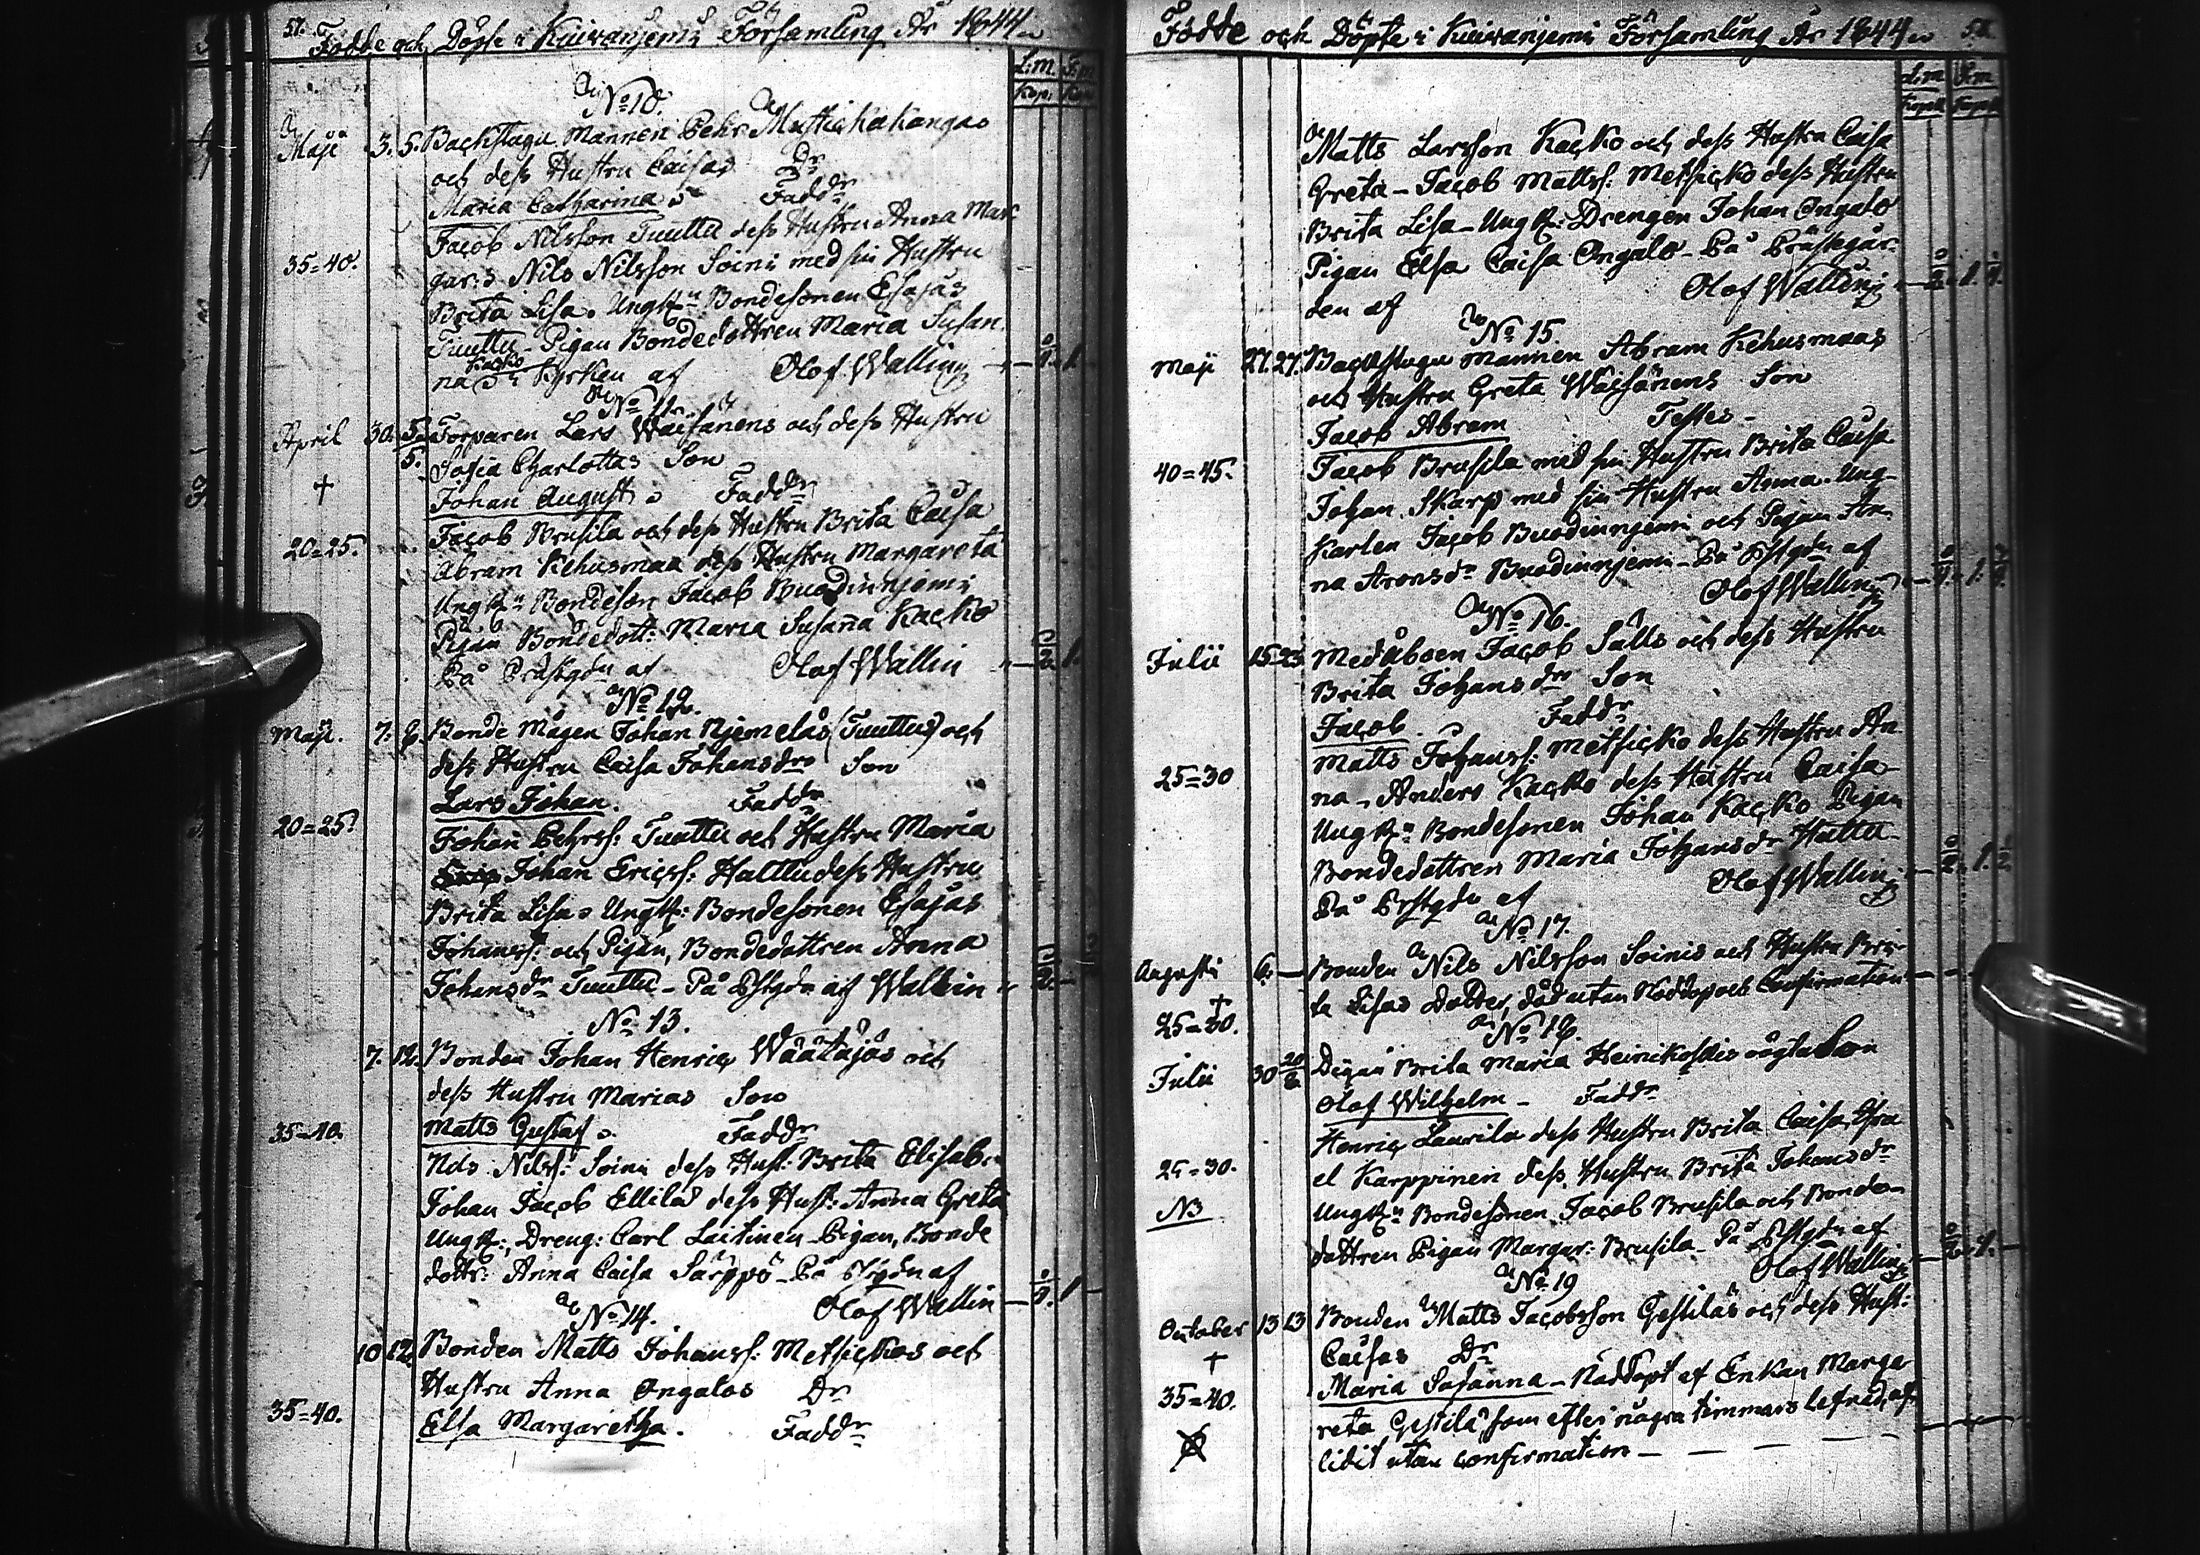 51. Födde och Döpte i Kuivanjemi Församling År 1844
L:m. S:m.
Kop. Kop.
No 10.
Maji 3. 5. Backstugu Mannen Pehr Mustichakangas
och dess Hustru Caisas Dr
Maria Catharina Faddr
Jacob Nilsson Tuuttu dess Hustru Anna Mar
35=40. gar: Nils Nilsson Soini med sin Hustru
Brita Lisa. Ungk:n Bondesonen Esajas
Tuuttu Pigan Bondedottren Maria Susan
Kacko
na i Kyrkan af Olof Wallin
No 11.
April 30. 5. Torparen Lars Waisänens och dess Hustru
5. Sofia Charlottas Son
† Johan August Faddr
Jacob Brusila och dess Hustru Brita Caisa
20=25. Abram Kehusmaa dess Hustru Margareta
Ungk:n Bondeson Jacob Buodinnjemi
Pigan Bondedott: Maria Susanna Kacko
På Prästgdn af Olof Wallin
No 12.
Maji. 7. 8. Bonde Mågen Johan Njemeläs (Tuuttus) och
dess Hustru Caisa Johansdrs Son
Lars Johan. Faddr
20=25. Johan Pehrss: Tuuttu och Hustru Maria
Johan Ericss: Halttu dess Hustru
Brita Lisa Ungk: Bondesonen Esajas
Johanss: och Pigan, Bondedottren Anna
Johansdr Tuuttu - På Pstgdn af Wallin
No 13.
7. 12. Bonden Johan Henric Wäätäjäs och
dess Hustru Marias Son
35=40. Matts Gustaf Faddr
Nils Nilss: Soini dess Hust: Brita Elisab.
Johan Jacob Ellilä dess Hust: Anna Greta
Ungk:, Dreng: Carl Laitinen Pigan, Bonde
dottr: Anna Caisa Särppö - På Pstgdn af
Olof Wallin
No 14.
10 12. Bonden Matts Johanss: Metsickos och
Hustru Anna Ongalos Dr
35=40. Elsa Margaretha. Faddr
Födde och Döpte i Kuivanjemi Församling År 1844 52.
L:m S:m
Kopek Kopek
Matts Larsson Kacko och dess Hustru Caisa
Greta - Jacob Mattss: Metsicko dess Hustru
Brita Lisa - Ungk: Drengen Johan Ongalo
Pigan Elsa Caisa Ongalo - På Prästegår-
den af Olof Wallin
No 15.
Maji 27. 27. Backstugu Mannen Abram Kehusmaas
och Hustru Greta Waisänens Son
Jacob Abram Testes -
40=45. Jacob Brusila med sin Hustru Brita Caisa
Johan Skarp med sin Hustru Anna. Ung-
Karlen Jacob Buodinnjemi och Pigan An-
na Aronsdr Buodinnjemi - På Pstgdn af
Olof Wallin
No 16.
Julii 15 23. Medåboen Jacob Sälls och dess Hustru
Brita Johansdrs Son
Jacob. Faddr
Matts Johanss: Metsicko dess Hustru An
25=30 na - Anders Kacko dess Hustru Caisa
Ungk:n Bondesonen Johan Kacko Pigan
Bondedottren Maria Johansdr Halttu
På Pstgdn af Olof Wallin
No 17.
Augusti 6. - Bonden Nils Nilsson Soinis och Hustru Bri-
† ta Lisas Dotter, död utan Nöddop och Confirmation
25=30. No 18.
Julii 30 20/8 Pigan Brita Maria Heinikoskis oägta Son
Olof Wilhelm - Faddr
Henric Laurila dess Hustru Brita Caisa, Isra
25=30. el Karppinen dess Hustru Brita Johansdr
NB Ungk:n Bondesonen Jacob Brusila och Bonde-
dottren Pigan Margar: Brusila - På Pstgdn af
Olof Wallin
No 19
October 13 13 Bonden Matts Jacobsson Gestiläs och dess Hust:
† Caisas Dr
35=40. Maria Susanna - Nöddöpt af Enkan Marga
reta Gestilä som efter några timmars lefnad, af
lidit utan confirmation